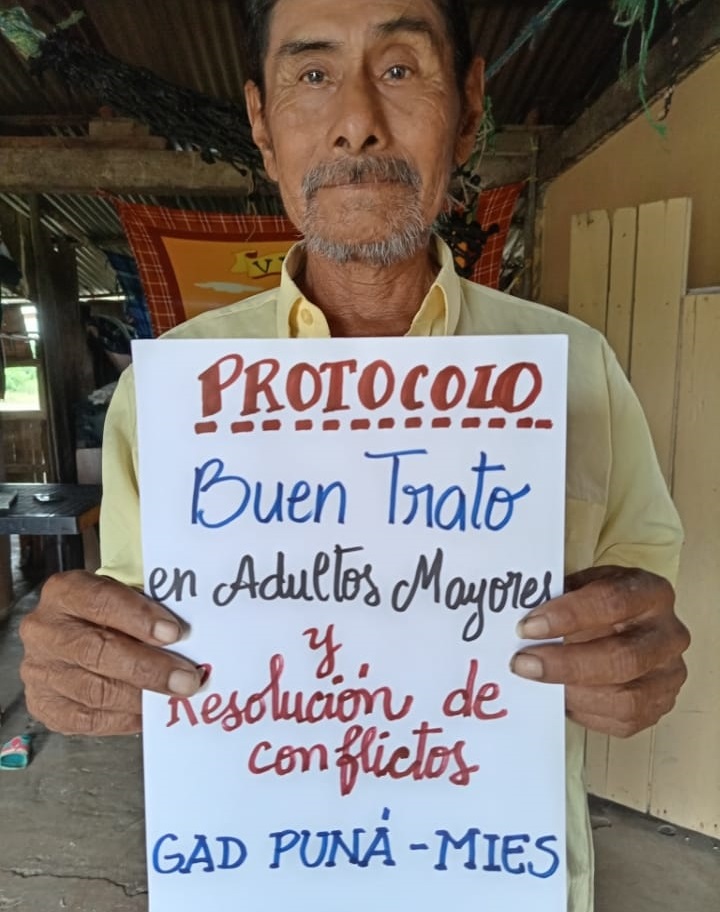 PROTOCOLO
Buen Trato
en Adultos Mayores
y
Resolución de
conflictos
GAD PUNÁ - MIES